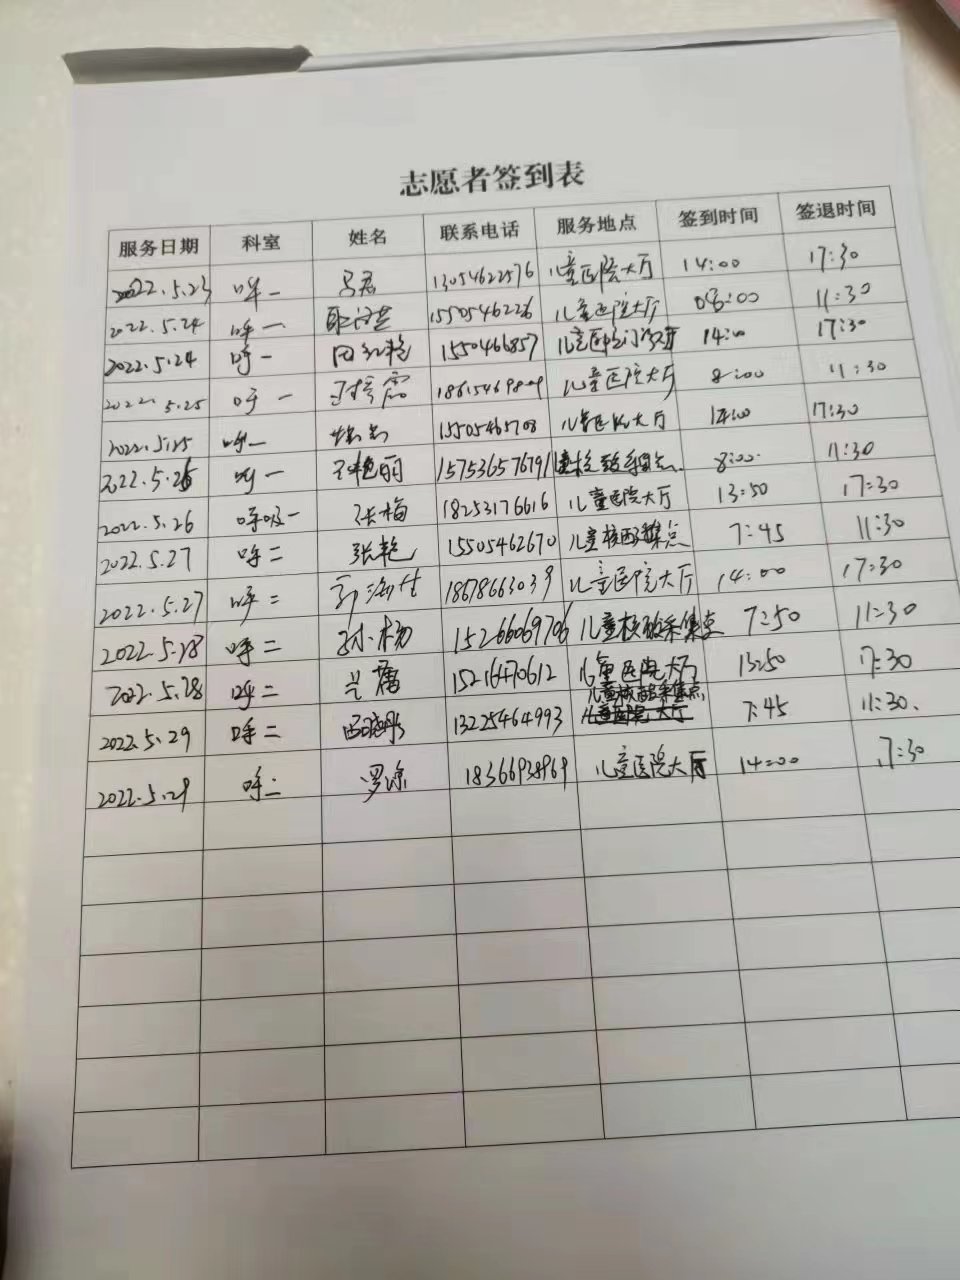 志愿者签到表
服务日期 科室 姓名 联系电话 服务地点 签到时间 签退时间
2022.5.23 呼一 马君 13054622576 儿童医院大厅 14:00 17:30
2022.5.24 呼一 15505462226 儿童医院大厅 08:00 11:30
2022.5.24 呼一 1550466857 儿童医院门诊大厅 14:00 17:30
2022.5.25 呼一 儿童医院大厅 8:00 11:30
2022.5.25 呼一 15505465708 儿童医院大厅 14:00 17:30
2022.5.26 呼一 艳丽 15753657679 8:00 11:30
2022.5.26 呼吸一 张梅 18253176616 儿童医院大厅 13:50 17:30
2022.5.27 呼二 张艳 15505462670 儿童核酸采集点 7:45 11:30
2022.5.27 呼二 1867866303 儿童医院大厅 14:00 17:30
2022.5.28 呼二 孙杨 15266069706 儿童核酸采集点 7:50 11:30
2022.5.28 呼二 15216470612 儿童医院大厅 13:50 17:30
2022.5.29 呼二 13225464993 儿童核酸采集点 7:45 11:30.
2022.5.29 呼二 罗琼 18366938969 儿童医院大厅 14:00 17:30